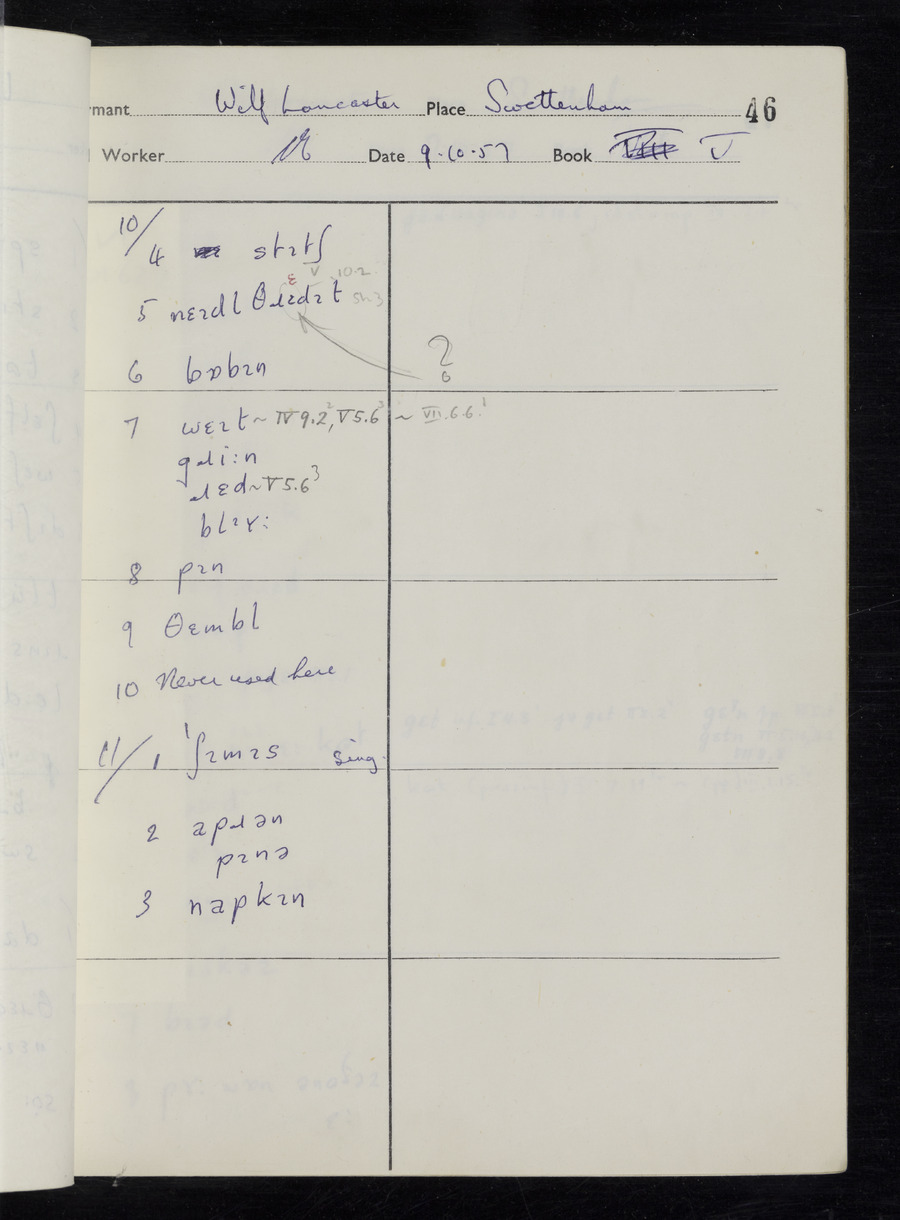 rmant Wilf Lancaster Place Swettenham 46
Worker Date 9.10.57 Book V
10/
4 stɪtʃ
V 10.2
5 nɛɪdl θɹɪdɪt sh.3
ɛ
6 bɒbɪn ?
7 wɛɪt ~ IV 9.2², V 5.6³ ~ VII.6.6.¹
gɹi:n
ɹɛd ~ V 5.6³
blɪʏ:
8 pɪn
9 θɛmbl
10 Never used here
11/ 1 ˈʃɪmɪs sing.
2 apɹən
pɪnə
3 napkɪn